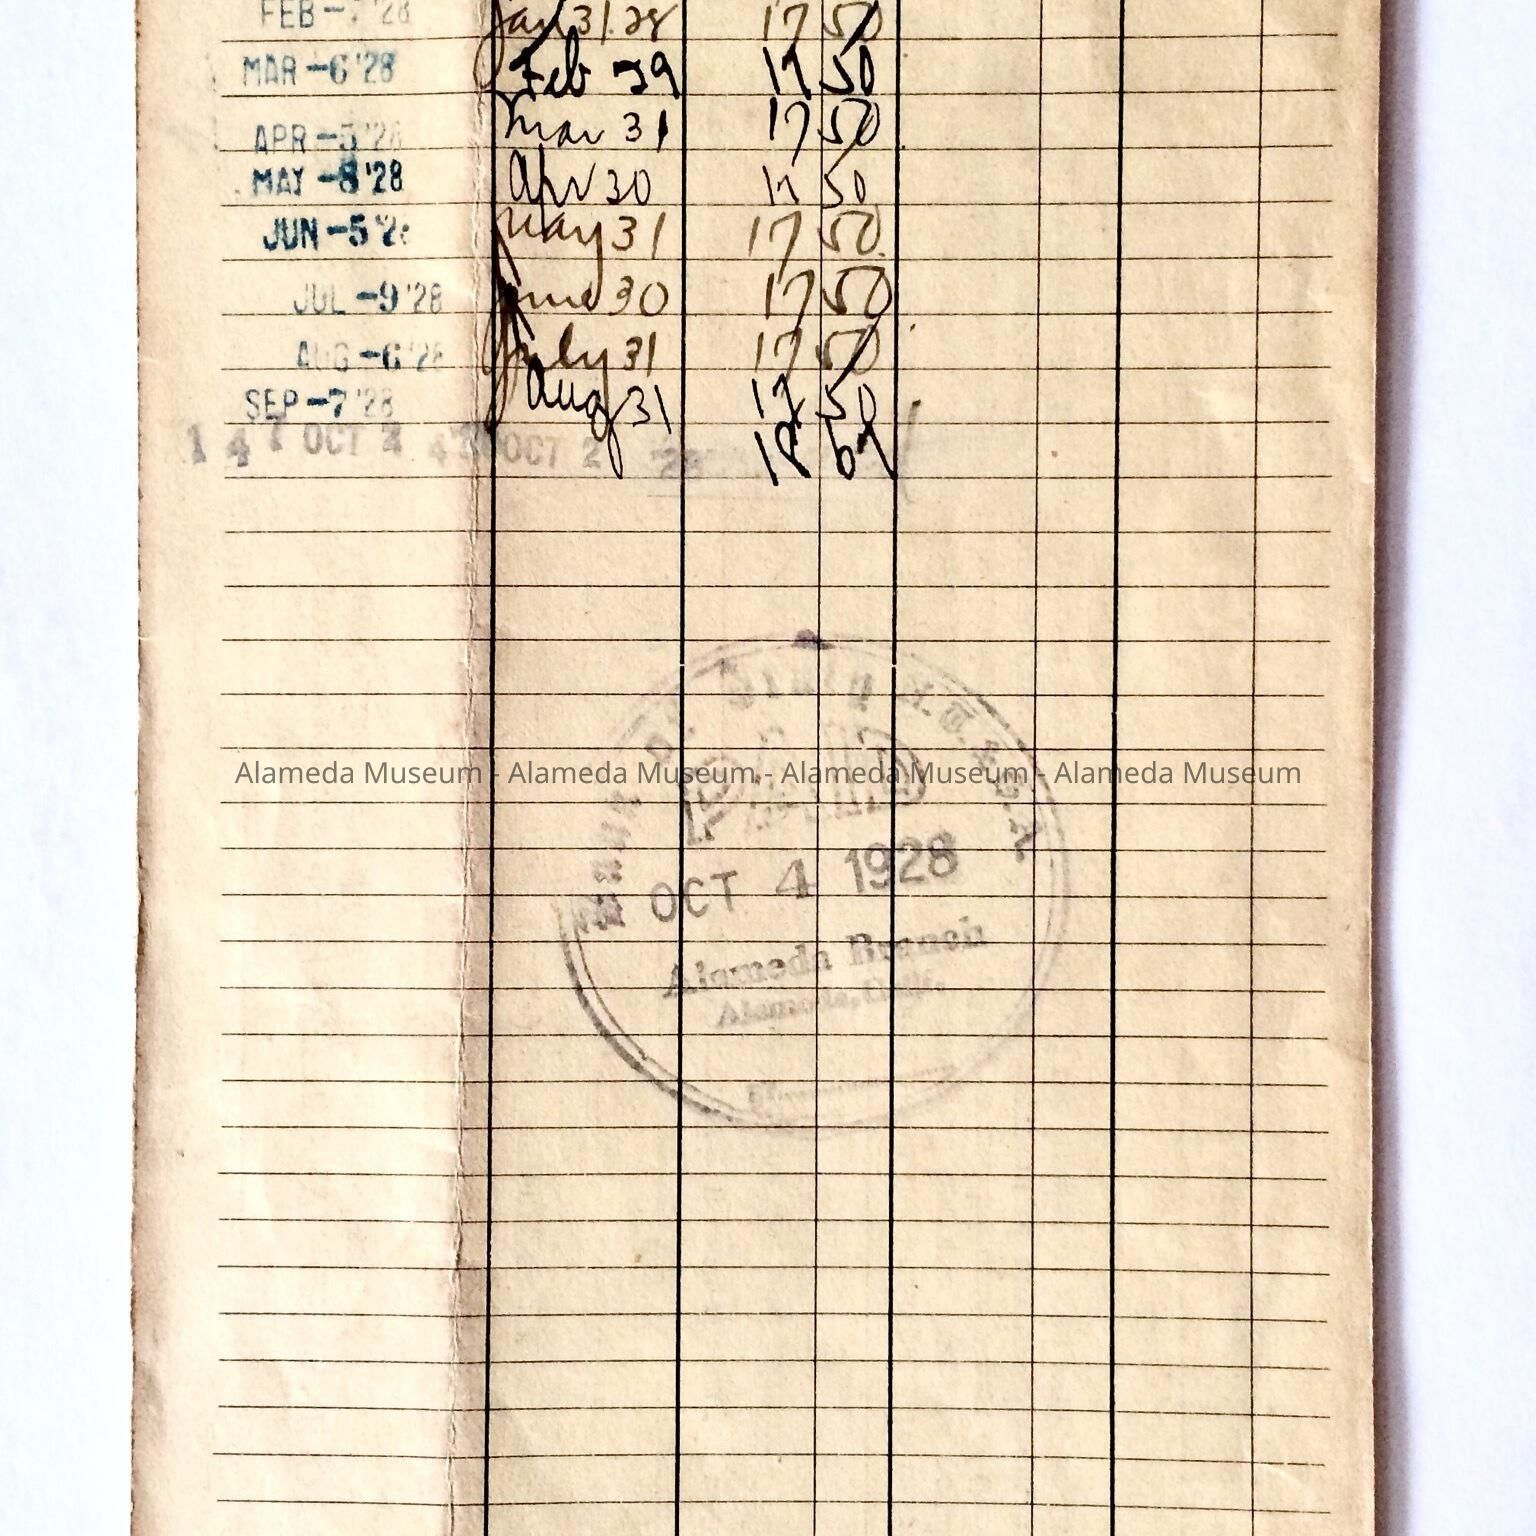 FEB -7 '28 Jan 31. 28 17 50
MAR -6 '28 Feb 29 17 50
APR -5 '28 Mar 31 17 50
MAY -8 '28 Apr 30 17 50
JUN -5 '28 May 31 17 50
JUL -9 '28 June 30 17 50
AUG -6 '28 July 31 17 50
SEP -7 '28 Aug 31 17 50
1 4 7 OCT 2 OCT 2 '28 18 67
Alameda Museum - Alameda Museum - Alameda Museum - Alameda Museum
Bank of Italy N.T.&S.A.
PAID
OCT 4 1928
Alameda Branch
Alameda, Calif.